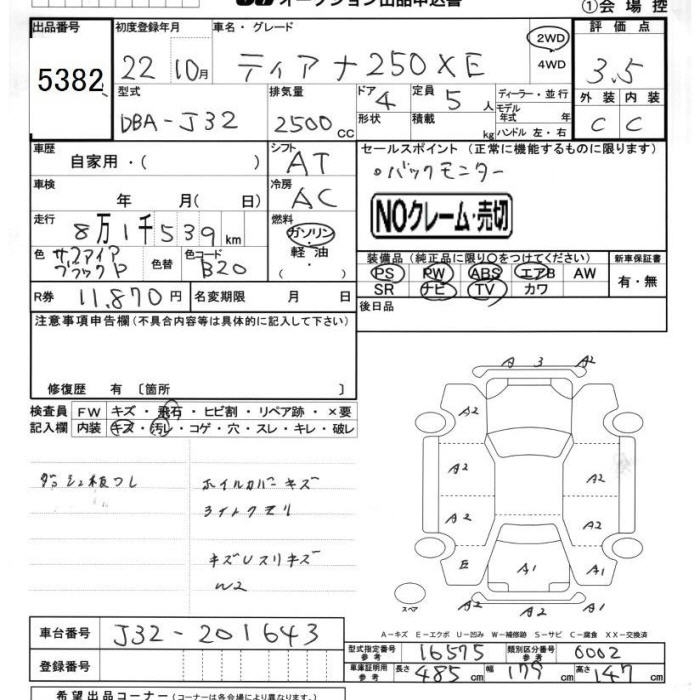 オークション出品申込書
①会場控
出品番号 初度登録年月 車名・グレード 評価点
5382 22 10月 ティアナ250XE 2WD 4WD 3.5
型式 排気量 ドア 4 定員 5人 ディーラー・並行 外装 内装
DBA-J32 2500cc 形状 積載 kg モデル年式 年 ハンドル 左・右 C C
車歴 自家用・( ) シフト AT セールスポイント(正常に機能するものに限ります)
車検 年 月( 日) 冷房 AC 。バックモニター
NOクレーム・売切
走行 8万1千539km 燃料 ガソリン・軽油・( )
色 サファイアブラックP 色替 色コード B20 装備品(純正品に限り〇をつけてください) 新車保証書
PS PW ABS エアB AW 有・無
SR ナビ TV カワ
R券 11,870円 名変期限 月 日 後日品
注意事項申告欄(不具合内容等は具体的に記入して下さい)
修復歴 有〔箇所 〕
検査員 FW キズ・飛石・ヒビ割・リペア跡・×要
記入欄 内装 キズ・汚レ・コゲ・穴・スレ・キレ・破レ
A 3 A2
A2 A2
A2 A2
A2 A2
E A1 A1
A2 A2 A1
スペア
ダッシュ板つし ホイルカバーキズ
ライトクモリ
キズUスリキズ
W2
A-キズ E-エクボ U-凹み W-補修跡 S-サビ C-腐食 XX-交換済
車台番号 J32-201643
型式指定番号 参考 16575 類別区分番号 参考 0002
登録番号 車庫証明用 参考 長さ 485cm 幅 179cm 高さ 147cm
希望出品コーナー(コーナーは各会場により異なります)